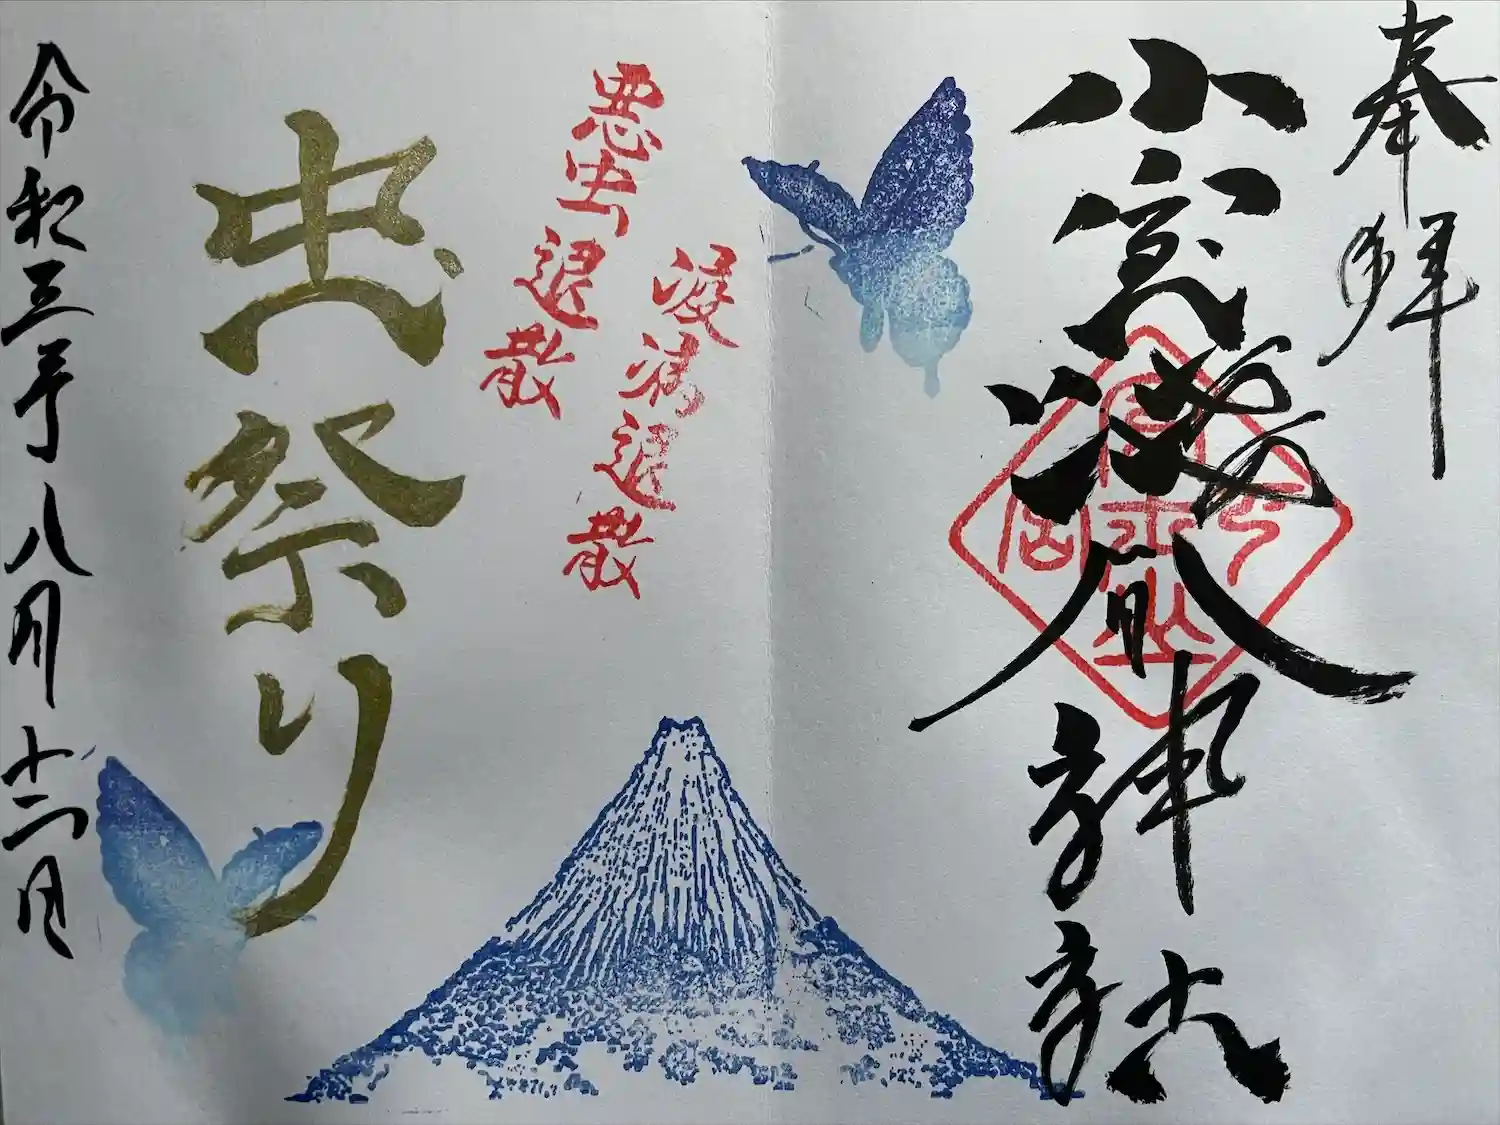 奉拝
小室淺間神社
疫病退散
悪虫退散
虫祭り
令和三年八月十二日